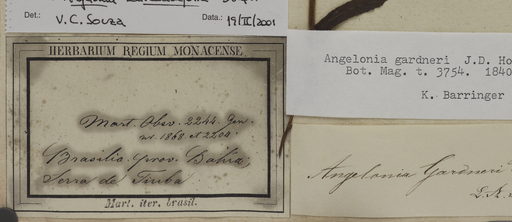 Det.: V.C. Souza Data.: 19/IX/2001
HERBARIUM REGIUM MONACENSE
Mart. Obs. 2244. Gen.
nr. 1868 et 2204.
Brasilia prov. Bahia,
Serra de Tiuba.
Mart. iter. brasil.
Angelonia gardneri J.D. Ho
Bot. Mag. t. 3754. 1840
K. Barringer
Angelonia Gardneri